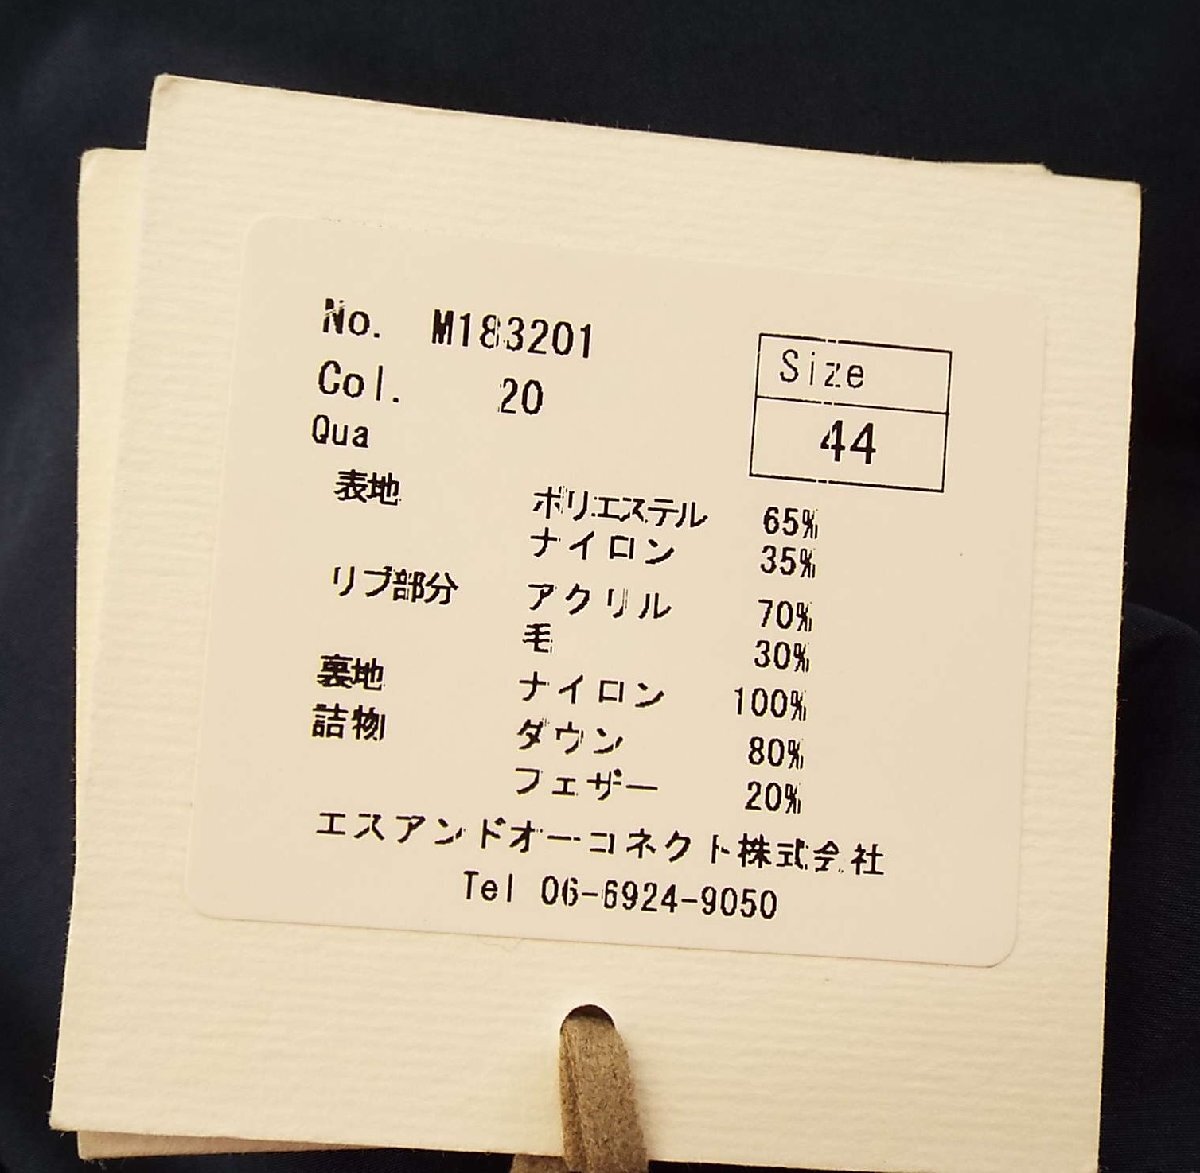 No. M183201
Col. 20
Size
44
Qua
表地 ポリエステル 65%
ナイロン 35%
リブ部分 アクリル 70%
毛 30%
裏地 ナイロン 100%
詰物 ダウン 80%
フェザー 20%
エスアンドオーコネクト株式会社
Tel 06-6924-9050